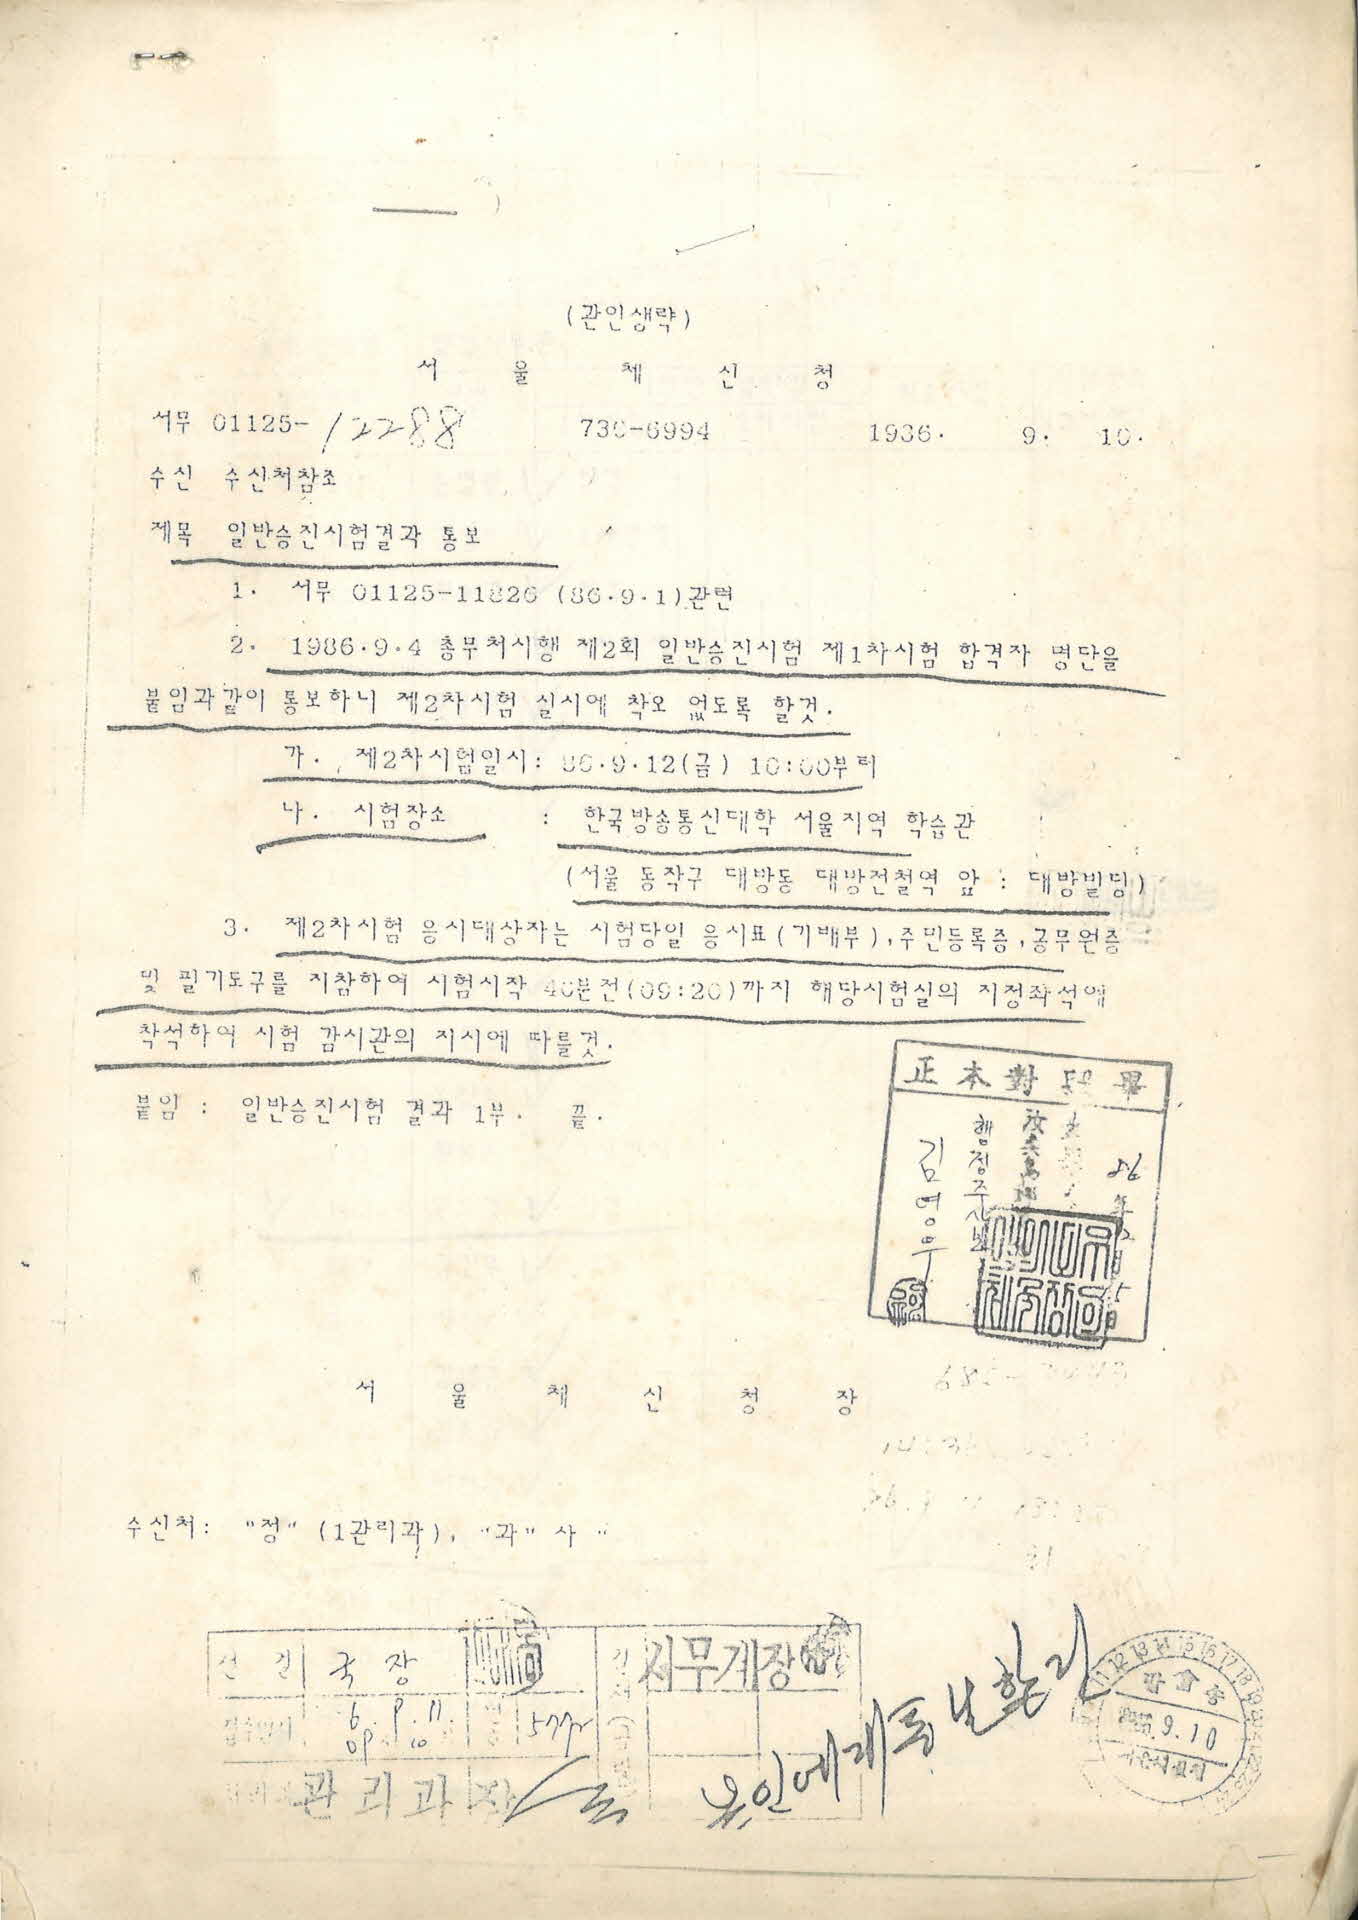 (관인생략)
서 울 체 신 청
서무 01125-12288 730-6994 1986. 9. 10.
수신 수신처참조
제목 일반승진시험결과 통보
1. 서무 01125-11826 (86.9.1)관련
2. 1986.9.4 총무처시행 제2회 일반승진시험 제1차시험 합격자 명단을
붙임과같이 통보하니 제2차시험 실시에 착오 없도록 할것.
가. 제2차시험일시: 86.9.12(금) 10:00부터
나. 시험장소 : 한국방송통신대학 서울지역 학습관
(서울 동작구 대방동 대방전철역 앞 : 대방빌딩)
3. 제2차시험 응시대상자는 시험당일 응시표(기배부),주민등록증,공무원증
및 필기도구를 지참하여 시험시작 40분전(09:20)까지 해당시험실의 지정좌석에
착석하여 시험 감시관의 지시에 따를것.
붙임 : 일반승진시험 결과 1부. 끝.
正本對 畢
86年
행정주사보
김영우
서 울 체 신 청 장
수신처: "정" (1관리과), "과" 사 "
선 결 국 장
서무계장
6. 9. 11.
관리과장
9.10